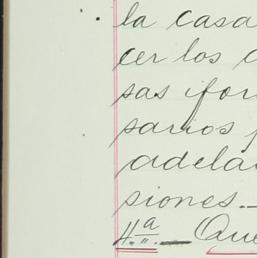 la casa
cer los
sas for
sarios
adela
siones.—
4.ª — Que